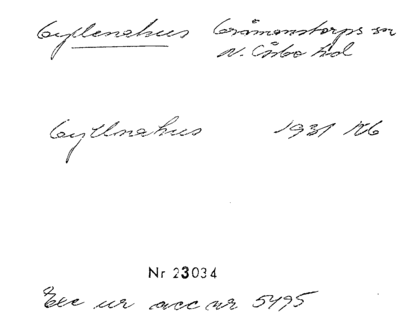 Gyllenahus Gråmanstorps sn
N. Åsbo hd
Gyllnahus 1931 Kb
Nr 23034
Exc ur acc nr 5495